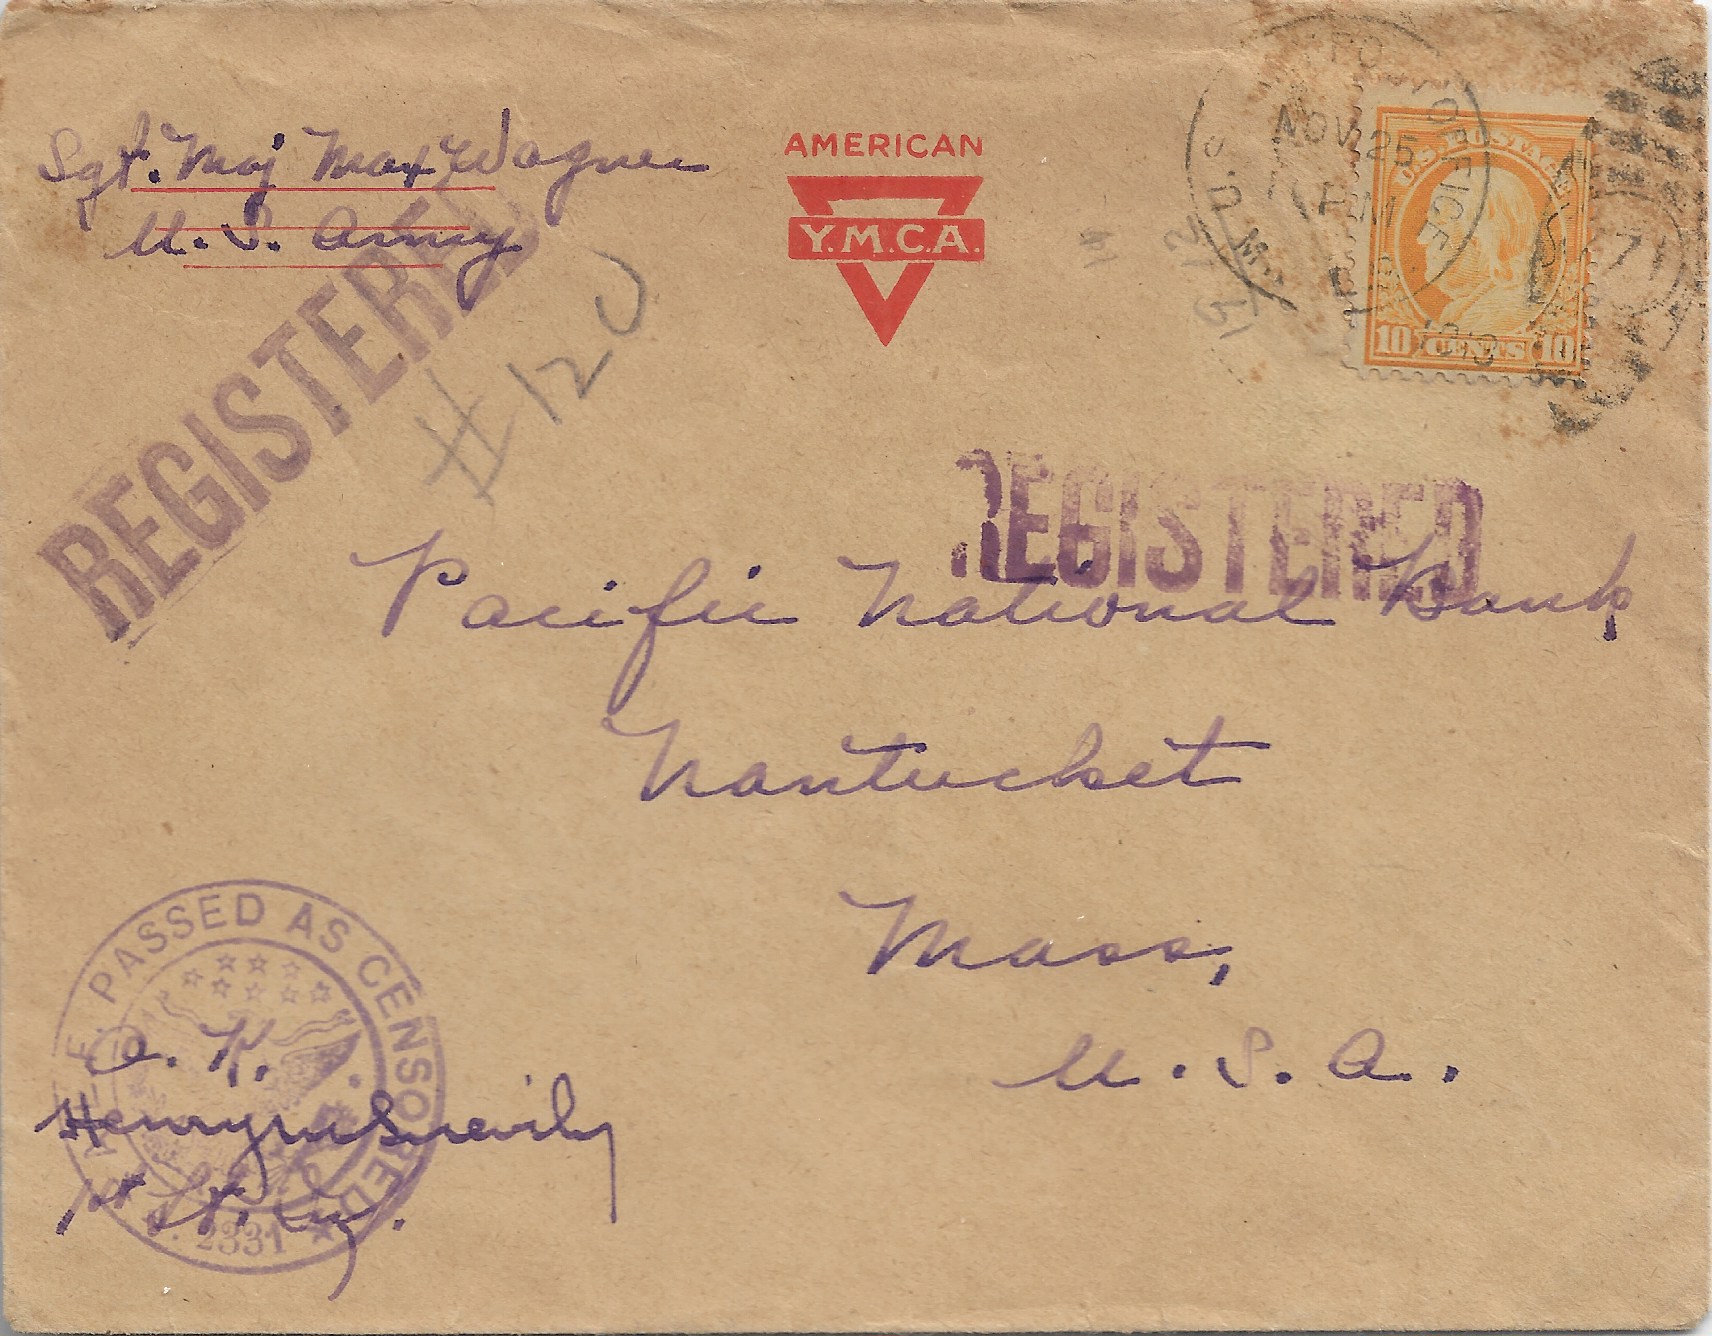 Sgt. Maj Max Wagner
U. S. Army
AMERICAN
Y.M.C.A.
NOV 25
PM
U.S. POSTAGE
10 CENTS 10
71
REGISTERED
#120
REGISTERED
Pacific National Bank,
Nantucket
Mass,
U. S. A.
PASSED AS CENSORED
2331
O. K.
1st Lt.